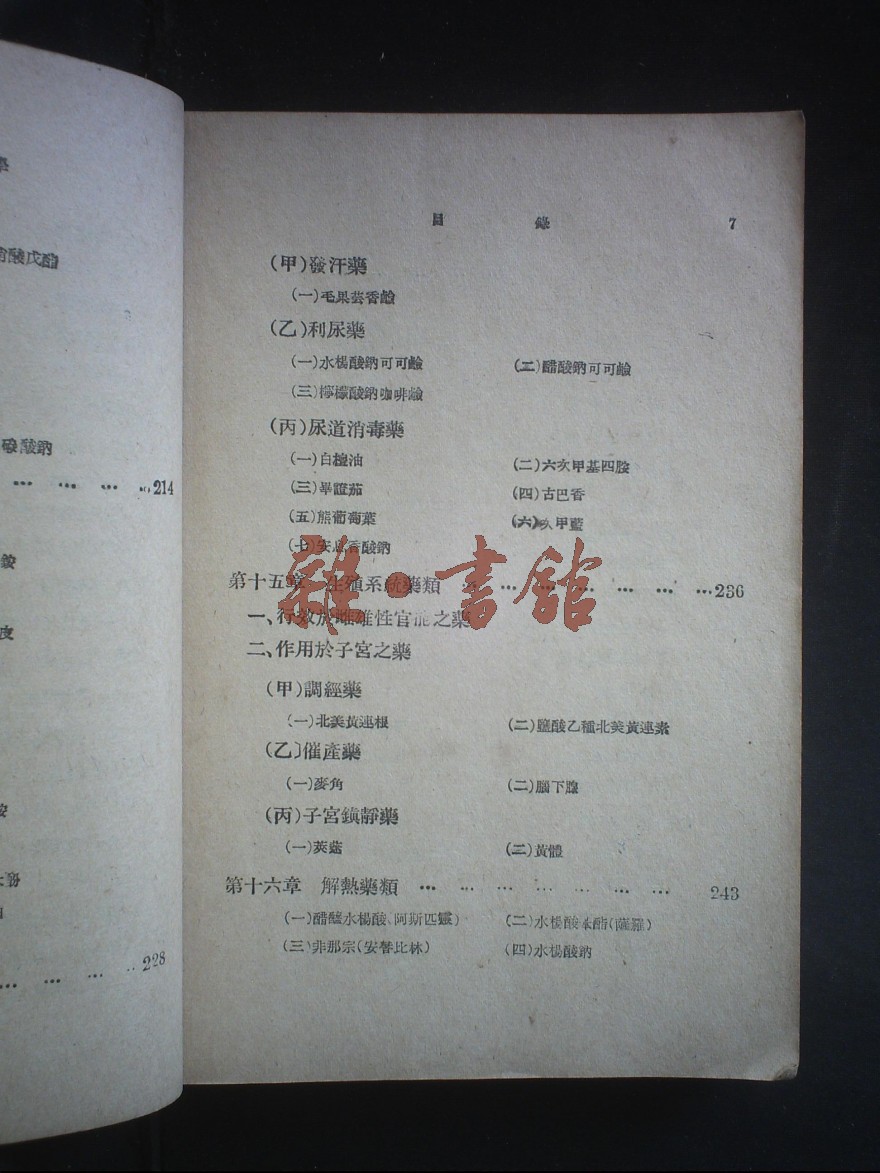 學
酸戊酯
酸鈉
… … … …214
銨
皮
… … … ..228
目 錄 7
(甲)發汗藥
(一)毛果芸香鹼
(乙)利尿藥
(一)水楊酸鈉可可鹼 (二)醋酸鈉可可鹼
(三)檸檬酸鈉咖啡鹼
(丙)尿道消毒藥
(一)白檀油 (二)六亥甲基四胺
(三)蓽證茄 (四)古巴香
(五)熊葡萄葉 (六) 甲藍
(七)安息香酸鈉
第十五章 生殖系統藥類 … … … … … … …236
一、行效於雌雄性官能之藥
二、作用於子宮之藥
(甲)調經藥
(一)北美黃連根 (二)鹽酸乙種北美黃連素
(乙)催產藥
(一)麥角 (二)腦下腺
(丙)子宮鎮靜藥
(一)莢蒾 (二)黃體
第十六章 解熱藥類 … … … … … … … 243
(一)醋醯水楊酸、阿斯匹靈) (二)水楊酸 酯(薩羅)
(三)非那宗(安替比林) (四)水楊酸鈉
雜·書館